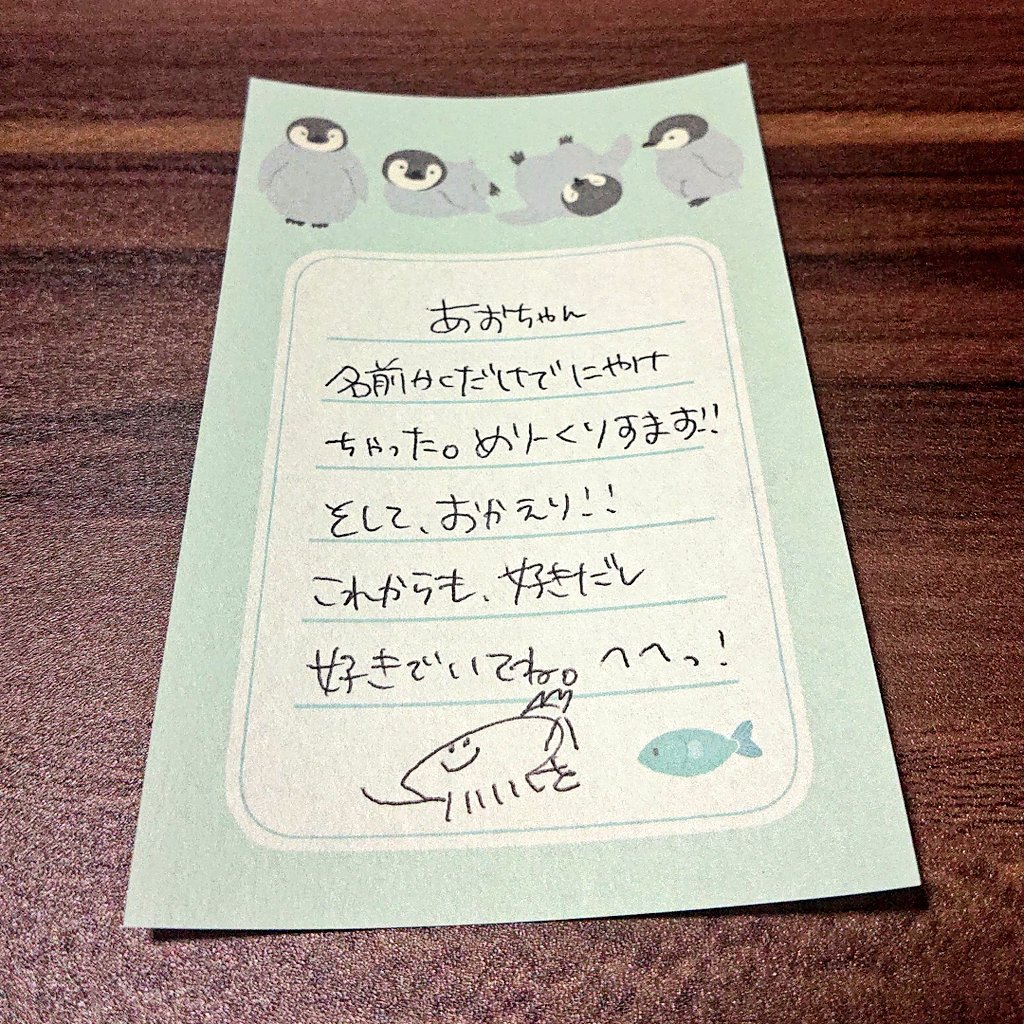 あおちゃん
名前かくだけでにやけ
ちゃった。めりーくりすます!!
そして、おかえり!!
これからも、好きだし
好きでいてね。へへっ!